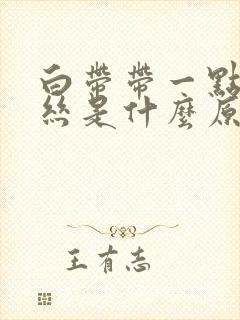 白帶帶一點
絲是什麼原
王有志